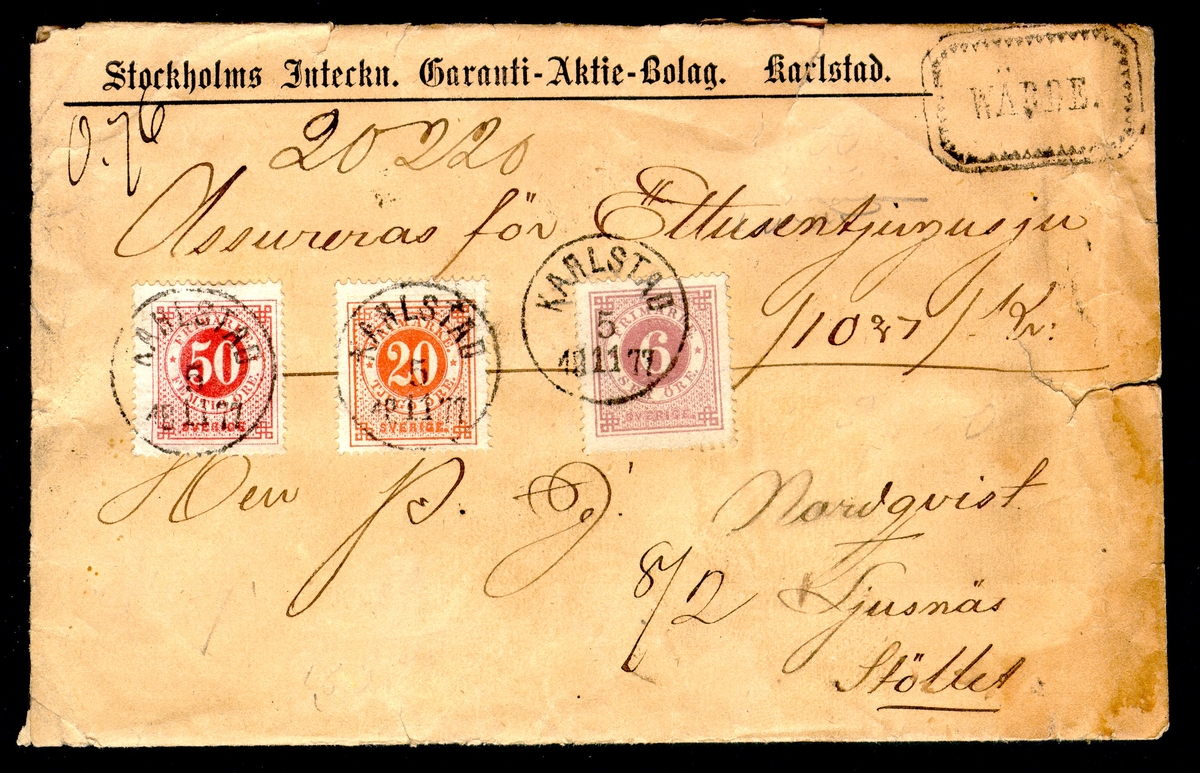 Stockholms Inteckn. Garanti-Aktie-Bolag. Karlstad.
WÄRDE.
0.76
20220
Assureras för Ettusentjugusju
/1027/ Kr:
KARLSTAD
5
11 77
50
FRIMÄRKE
FEMTIO ÖRE.
SVERIGE
KARLSTAD
5
11 77
20
FRIMÄRKE
TJUGO ÖRE.
SVERIGE.
KARLSTAD
5
11 77
6
FRIMÄRKE
SEX ÖRE.
SVERIGE.
Herr P. G. Nordqvist
8/2
Ljusnäs
Stöllet